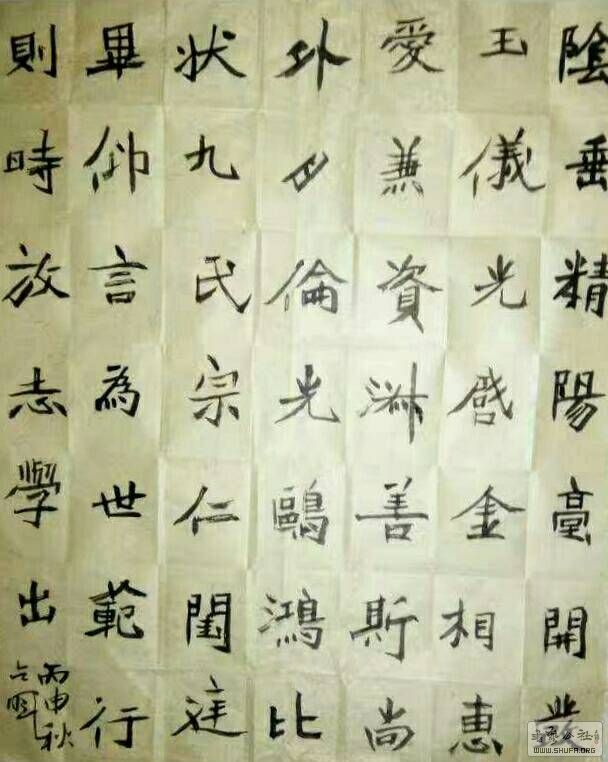 陰垂精陽臺開
玉儀光啓金相惠
愛兼資善斯尚
外倫光鷗鴻比
状九民宗仁閨庭
畢仰言為世範行
則時放志學出
丙申秋
WWW.SHUFA.ORG